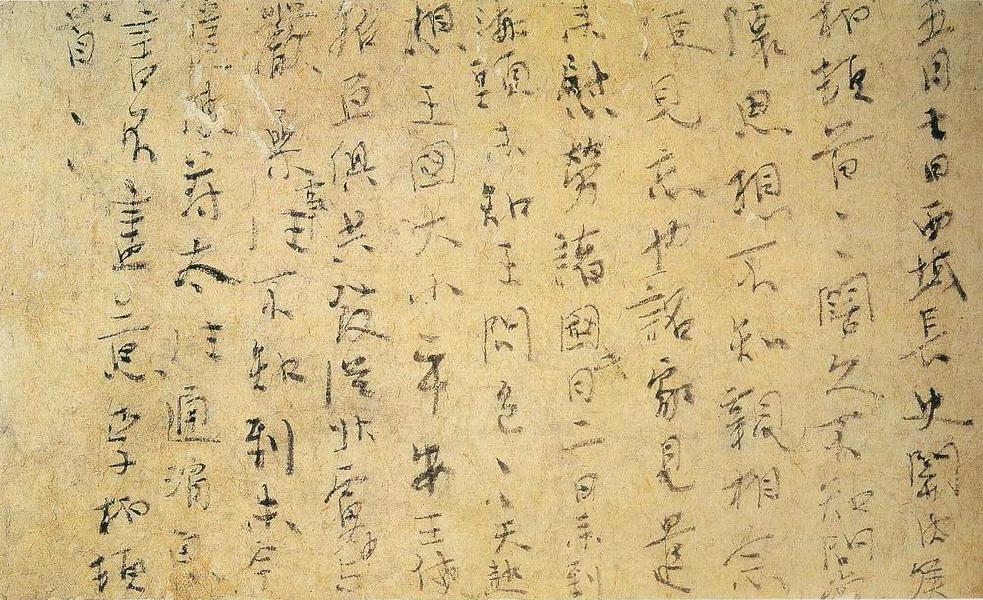 五月七日西域長史關内侯
柏頓首〻〻闊久不知問常
懷思想不知親相念
便見忘也詔家見遣
来慰勞諸國此月二日来到
海頭未知王問邑〻天熱
想王國大小平安王使
招亘俱共發從北虜中與
嚴參事往不知到未今
遣使苻太往通消息
書不盡意李柏頓
首〻〻